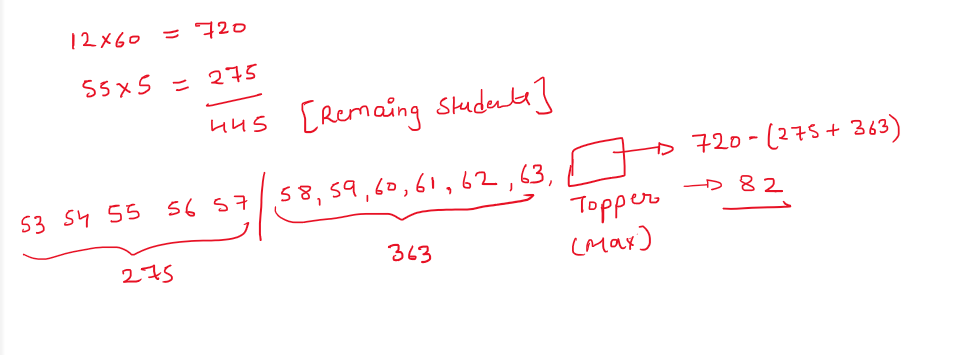 12×60 = 720
55×5 = 275
445 [Remaing students]
53 54 55 56 57 | 58, 59, 60, 61, 62, 63, → 720 - (275 + 363)
Topper → 82
(Max)
275
363